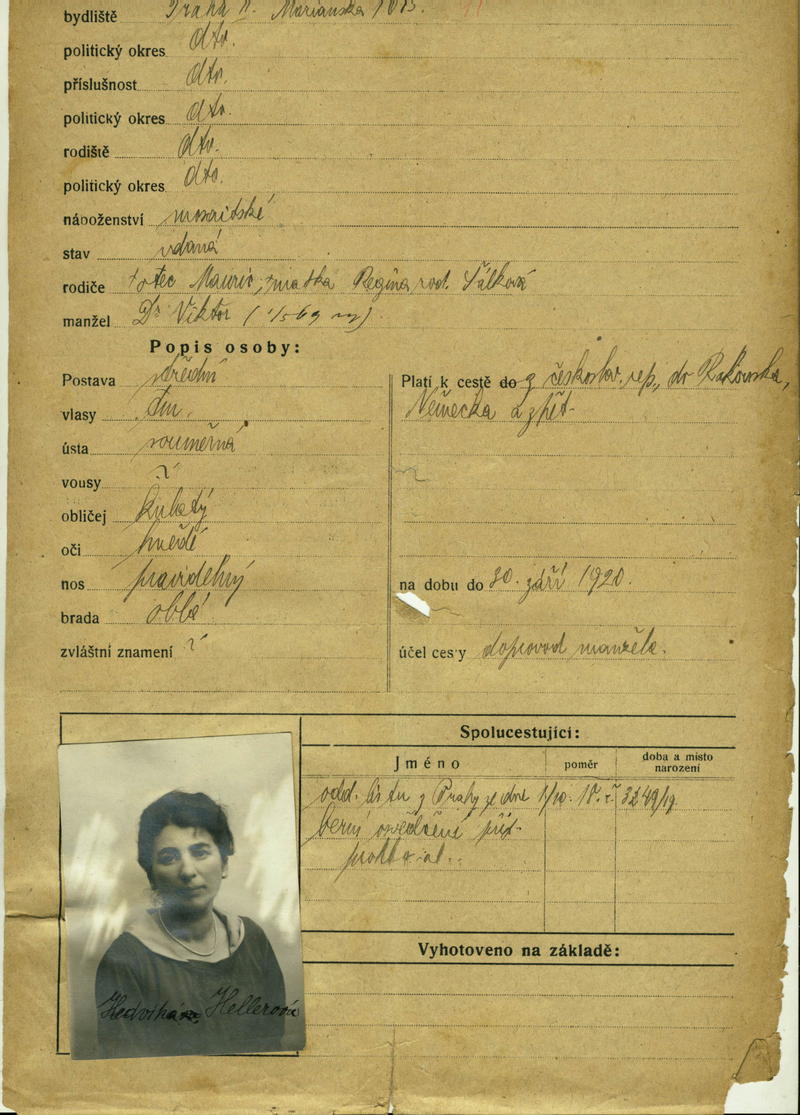 bydliště Praha II. Mariánská
politický okres dto.
příslušnost dto.
politický okres dto.
rodiště dto.
politický okres dto.
náboženství mosaitské
stav vdaná
rodiče otec Mauric, matka Regina rod.
manžel Dr Viktor
Popis osoby:
Postava střední
vlasy
ústa souměrná
vousy
obličej kulatý
oči hnědé
nos pravidelný
brada oblá
zvláštní znamení
Platí k cestě do z českoslov. rep., do Rakouska,
Německa a zpět.
na dobu do 30. září 1920.
účel cesty doprovod manžela.
Spolucestující:
Jméno poměr doba a místo narození
odd. listu z Prahy ze dne
berní osvědčení
Vyhotoveno na základě:
Hellerová